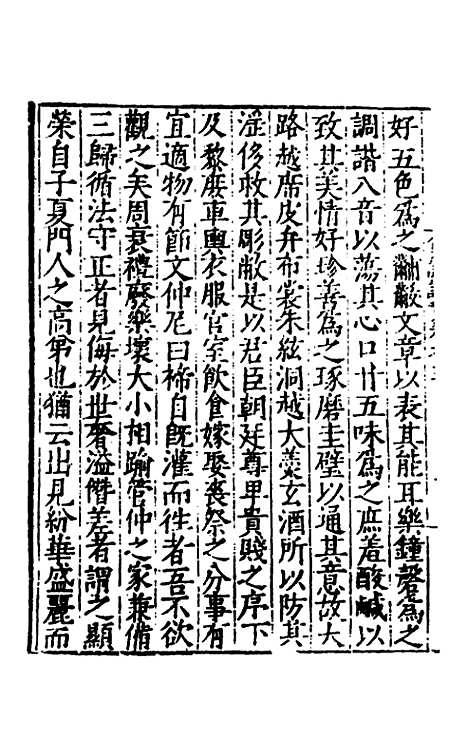 好五色爲之黼黻文章以表其能耳樂鐘磬爲之
調諧八音以蕩其心口甘五味爲之庶羞酸鹹以
致其美情好珍善爲之琢磨圭璧以通其意故大
路越席皮弁布裳朱絃洞越大羹玄酒所以防其
淫侈救其彫敝是以君臣朝廷尊卑貴賤之序下
及黎庶車輿衣服宮室飲食嫁娶喪祭之分事有
宜適物有節文仲尼曰禘自既灌而往者吾不欲
觀之矣周衰禮廢樂壞大小相踰管仲之家兼備
三歸循法守正者見侮於世奢溢僭差者謂之顯
榮自子夏門人之高第也猶云出見紛華盛麗而